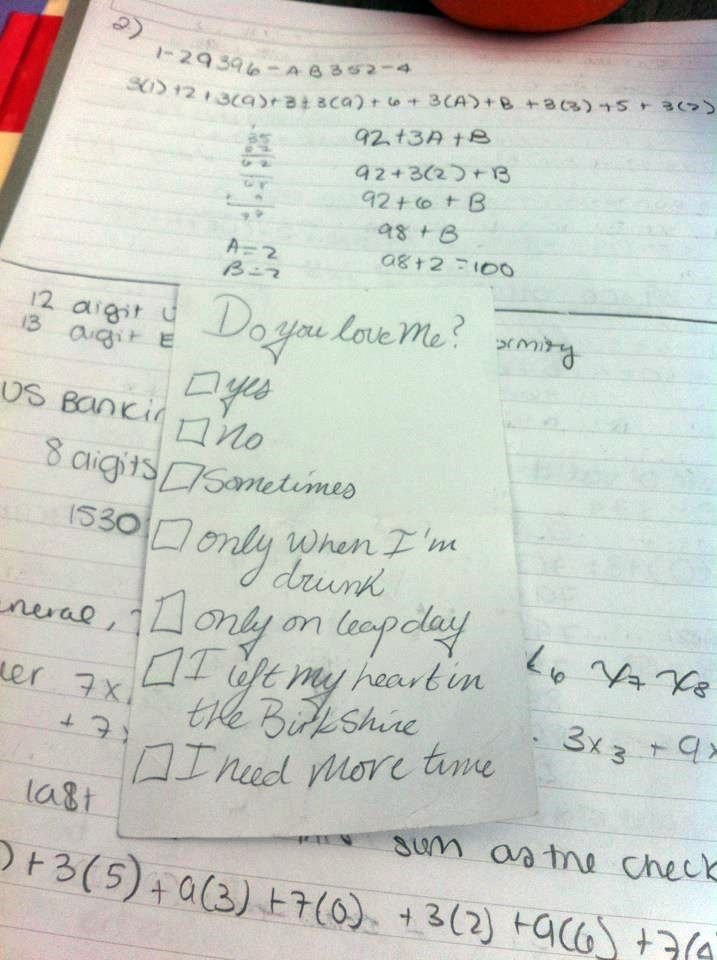 2)
1-29396-AB352-4
3(1)+2+3(9)+3+3(9)+6+3(A)+B+3(3)+5+3(2)
35
62
92+3A+B
92+3(2)+B
92+6+B
98+B
A=2
B=2
98+2=100
12 digit
13 digit
US Bankin
8 digits
1530
Do you love me?
yes
no
Sometimes
only when I'm
drunk
only on leap day
I left my heart in
the BirkShire
I need more time
7x
x6 x7 x8
+7
3x3 + 9x
last
sum as the check
)+3(5)+9(3)+7(0) +3(2)+9(6)+7(4